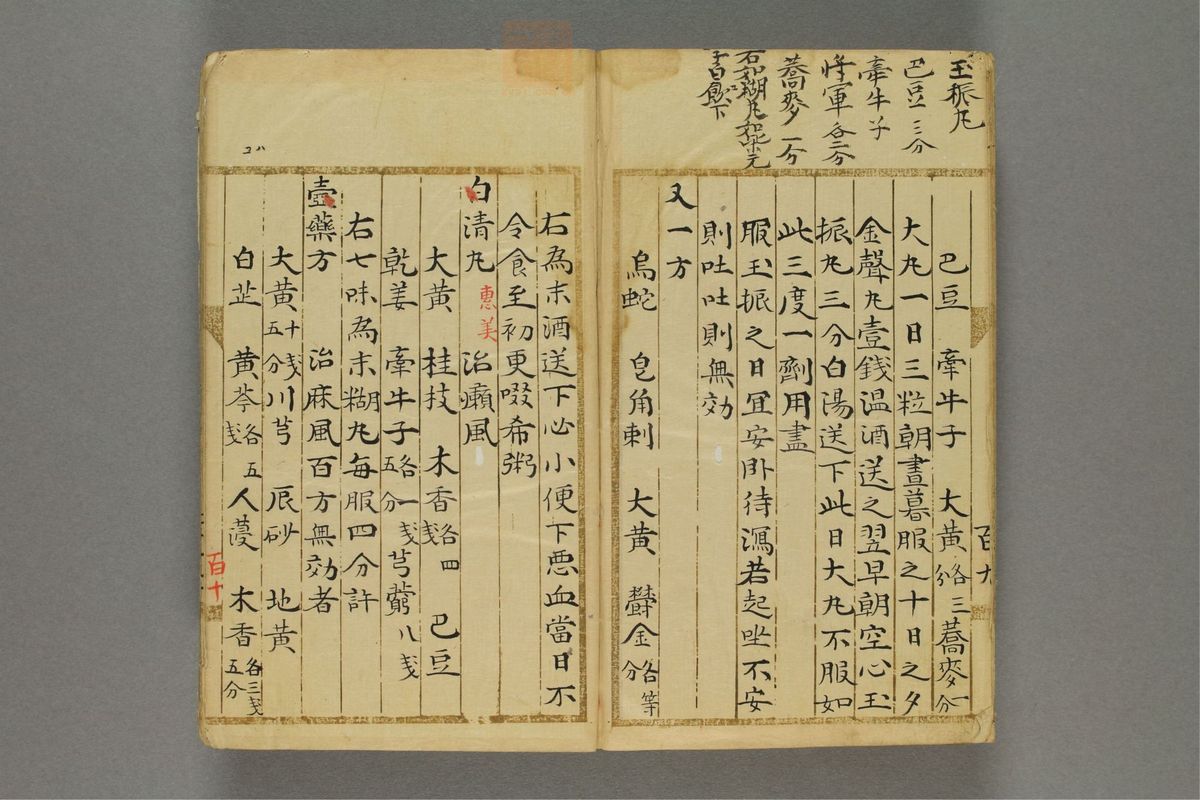 玉振丸
巴豆三分
牽牛子
将軍各二分
蕎麥一分
右如糊丸如梧元
子白飲下
巴豆 牽牛子 大黄各三分 蕎麥一分
大丸一日三粒朝晝暮服之十日之夕
金聲丸壹錢温酒送之翌早朝空心玉
振丸三分白陽送下此日大丸不服如
此三度一劑用盡
服玉振之日冝安卧待瀉若起坐不安
則吐吐則無効
又一方
烏蛇 皂角刺 大黄 欝金各等分
百九
右為末酒送下必小便下悪血當日不
令食至初更啜希粥
白清丸 惠美 治癩風
大黄 桂枝 木香各四戔 巴豆
乾姜 牽牛子各五分 一戔芎藭八戔
右七味為末糊丸毎服四分許
壺藥方 治麻風百方無効者
大黄十戔五分 川芎 辰砂 地黄
白芷 黄芩各五戔 人薓 木香各三戔五分
百十